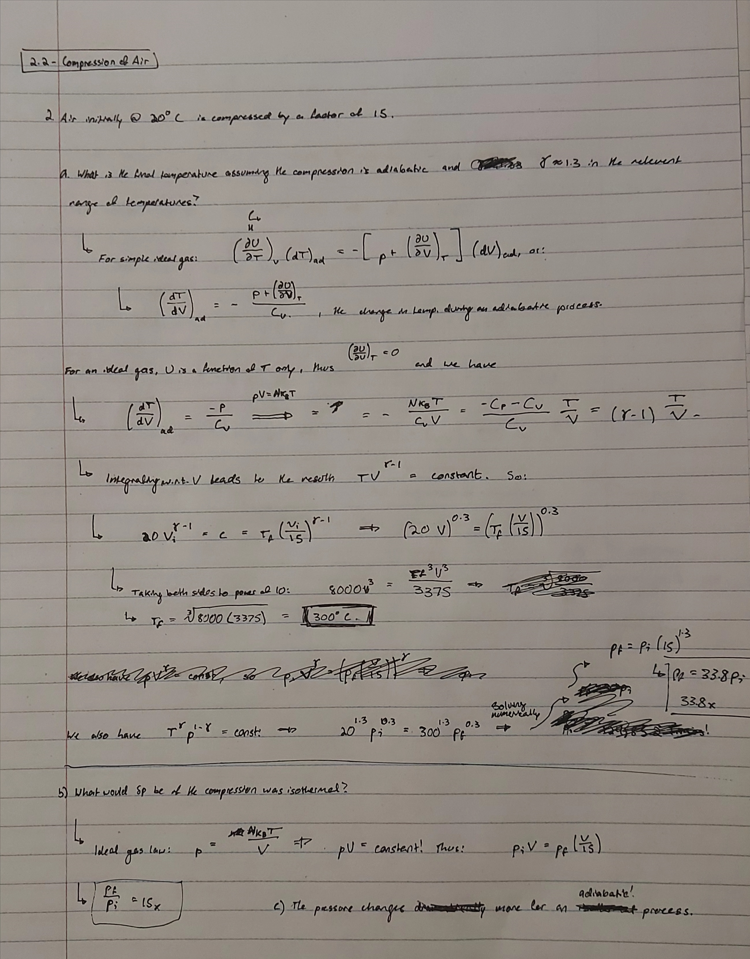 2.2 - Compression of Air
2 Air initially @ 20° C is compressed by a factor of 15.
a. What is the final temperature assuming the compression is adiabatic and γ ≈ 1.3 in the relevant
range of temperatures?
C_v
↳ For simple ideal gas: (∂U/∂T)_V (dT)_ad = -[p + (∂U/∂V)_T] (dV)_ad, or:
↳ (dT/dV)_ad = - (p + (∂U/∂V)_T)/C_v, the change in temp. during an adiabatic process.
For an ideal gas, U is a function of T only, thus (∂U/∂V)_T = 0 and we have
↳ (dT/dV)_ad = -p/C_v ⟹ (pV = Nk_BT) = - Nk_BT/C_vV = -C_p - C_v/C_v T/V = (γ-1) T/V
↳ Integrating w.r.t. V leads to the result TV^(γ-1) = constant. So:
↳ 20 V_i^(γ-1) = c = T_f (V_i/15)^(γ-1) ⇒ (20 V)^0.3 = (T_f (V/15))^0.3
↳ Taking both sides to power of 10: 8000V^3 = T_f^3 V^3/3375 ⇒
↳ T_f = ∛8000(3375) = 300° C.
p_f = p_i (15)^1.3
↳ p_f = 33.8 p_i
33.8x
We also have T^γ p^(1-γ) = const. → 20^1.3 p_i^0.3 = 300^1.3 p_f^0.3 solving numerically →
b) What would δp be if the compression was isothermal?
↳ Ideal gas law: p = Nk_BT/V ⇒ pV = constant! Thus: p_i V = p_f (V/15)
↳ p_f/p_i = 15x
c) The pressure changes more for an adiabatic! process.